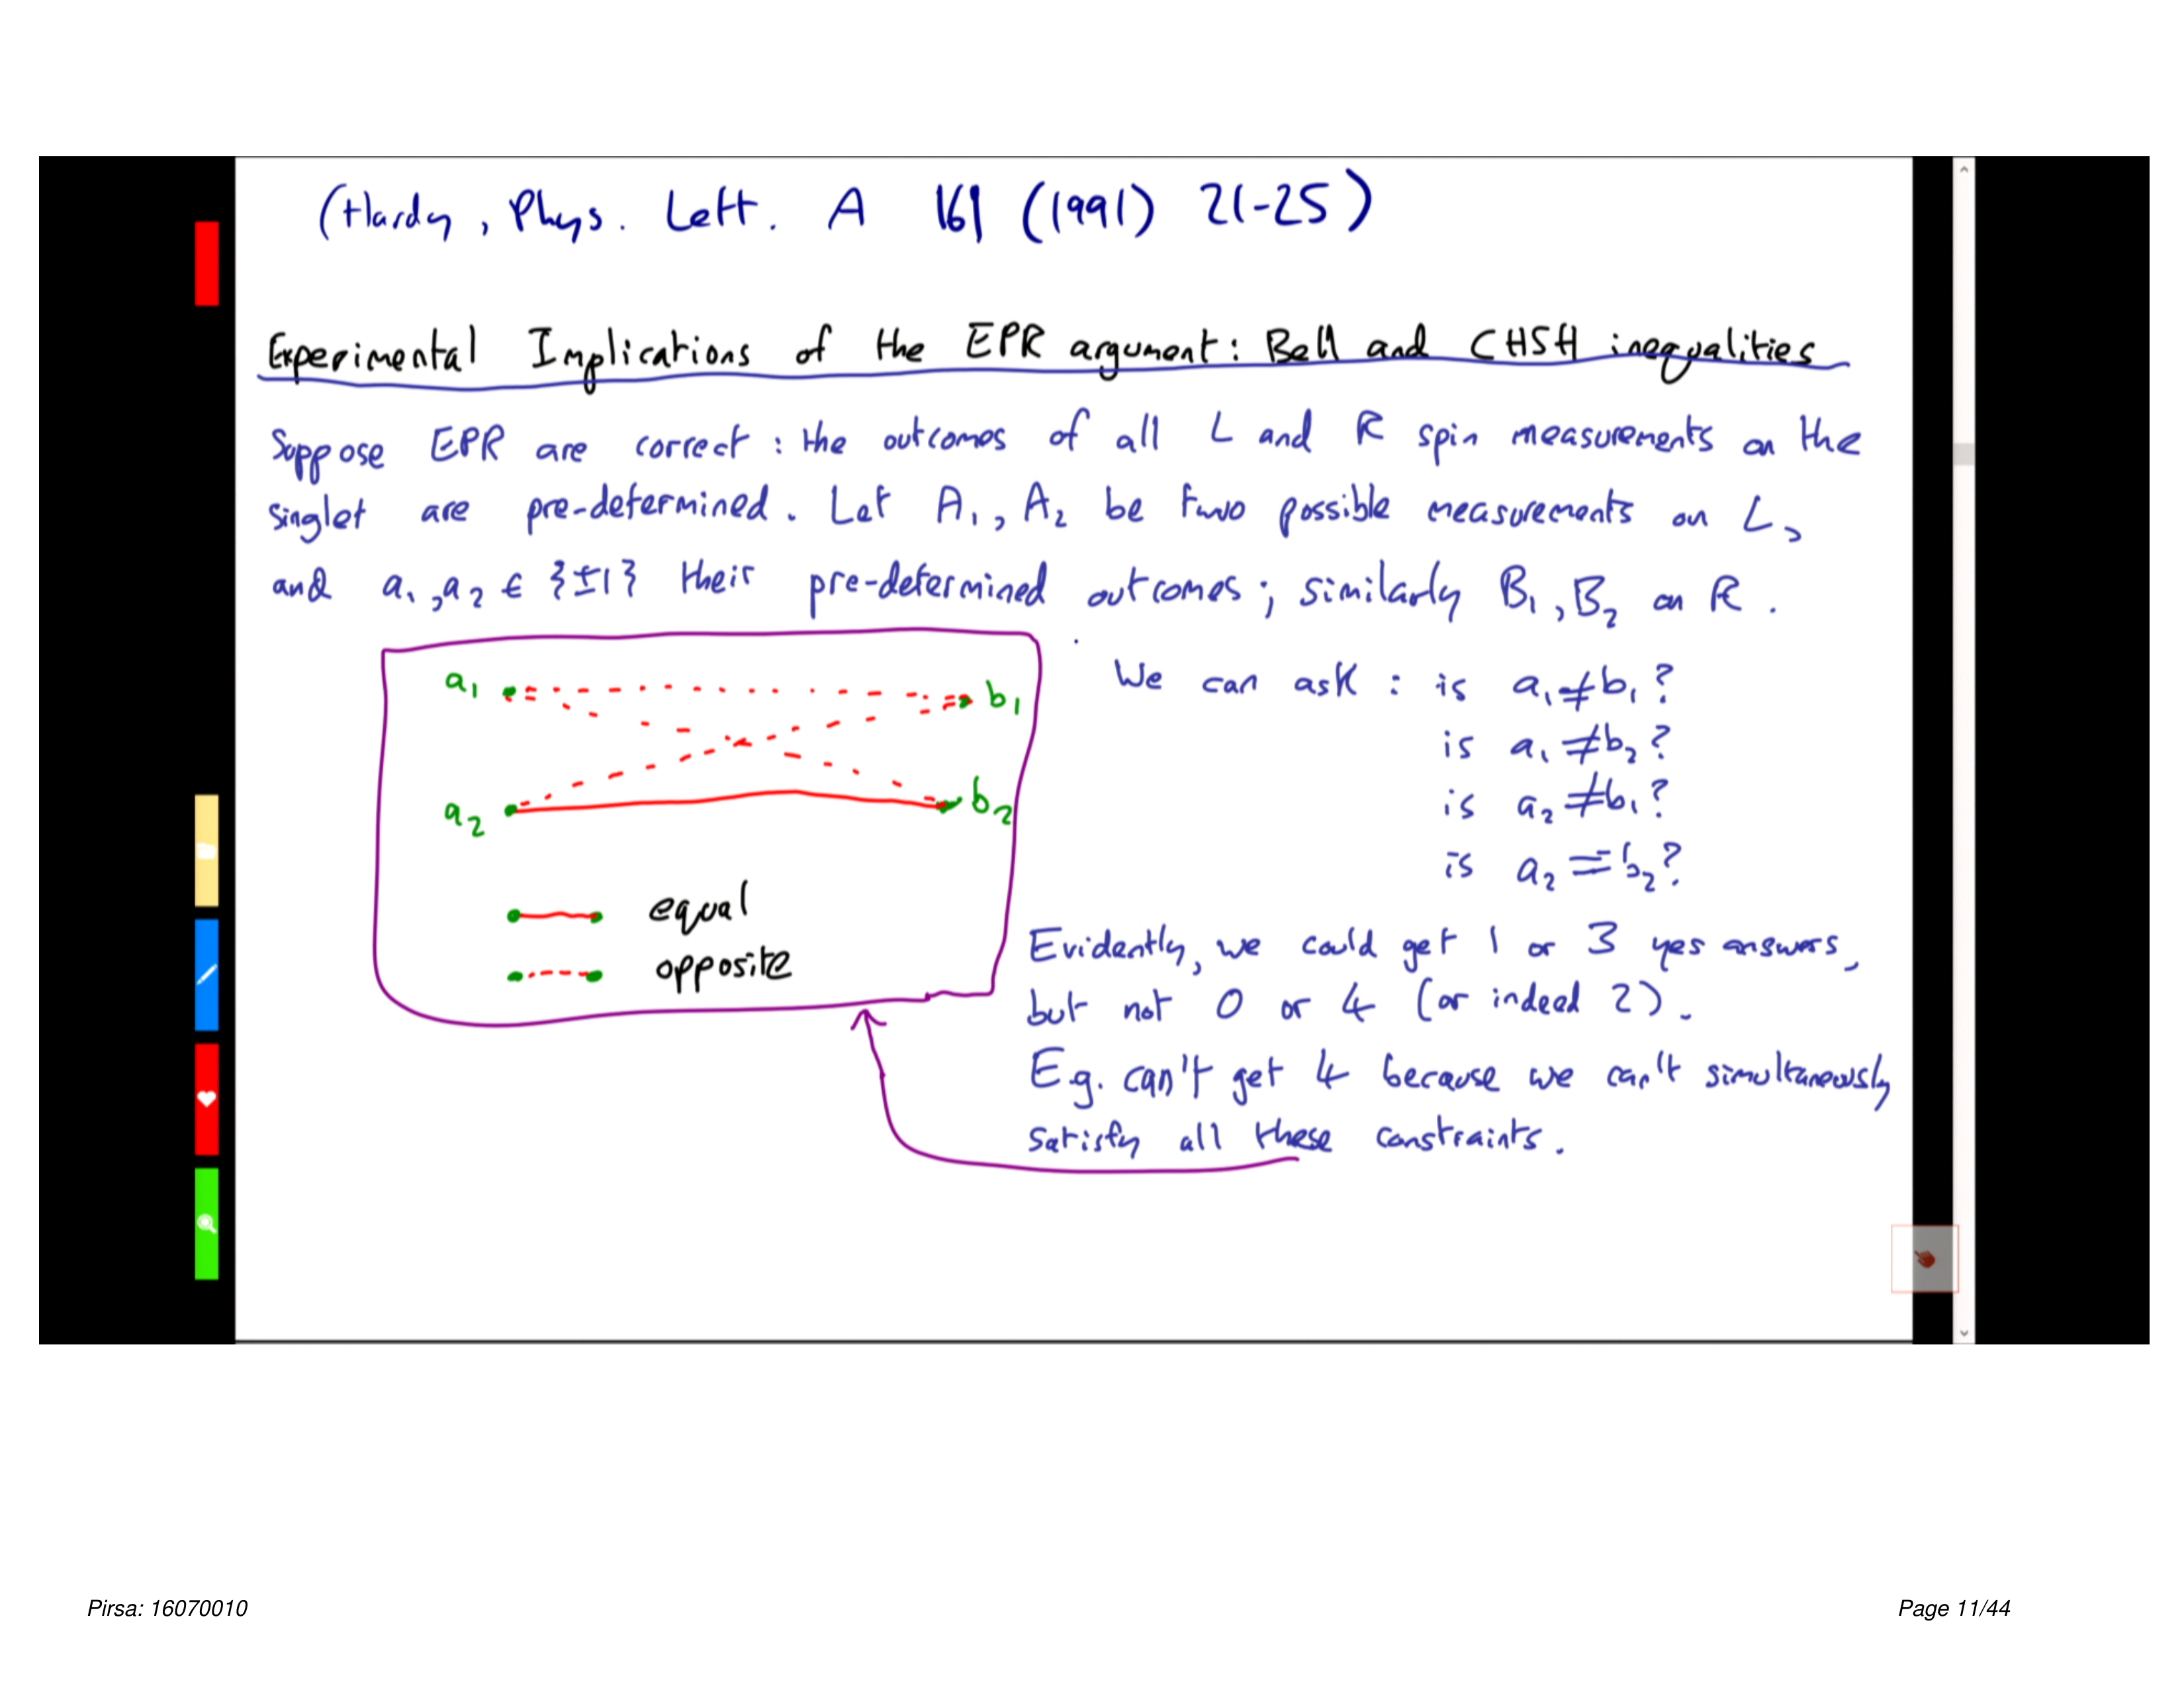 (Hardy, Phys. Lett. A 161 (1991) 21-25)
Experimental Implications of the EPR argument: Bell and CHSH inequalities
Suppose EPR are correct: the outcomes of all L and R spin measurements on the
singlet are pre-determined. Let A₁, A₂ be two possible measurements on L,
and a₁, a₂ ∈ {±1} their pre-determined outcomes; similarly B₁, B₂ on R.
a₁ b₁
a₂ b₂
equal
opposite
We can ask: is a₁≠b₁?
is a₁≠b₂?
is a₂≠b₁?
is a₂=b₂?
Evidently, we could get 1 or 3 yes answers,
but not 0 or 4 (or indeed 2).
E.g. can't get 4 because we can't simultaneously
satisfy all these constraints.
Pirsa: 16070010
Page 11/44